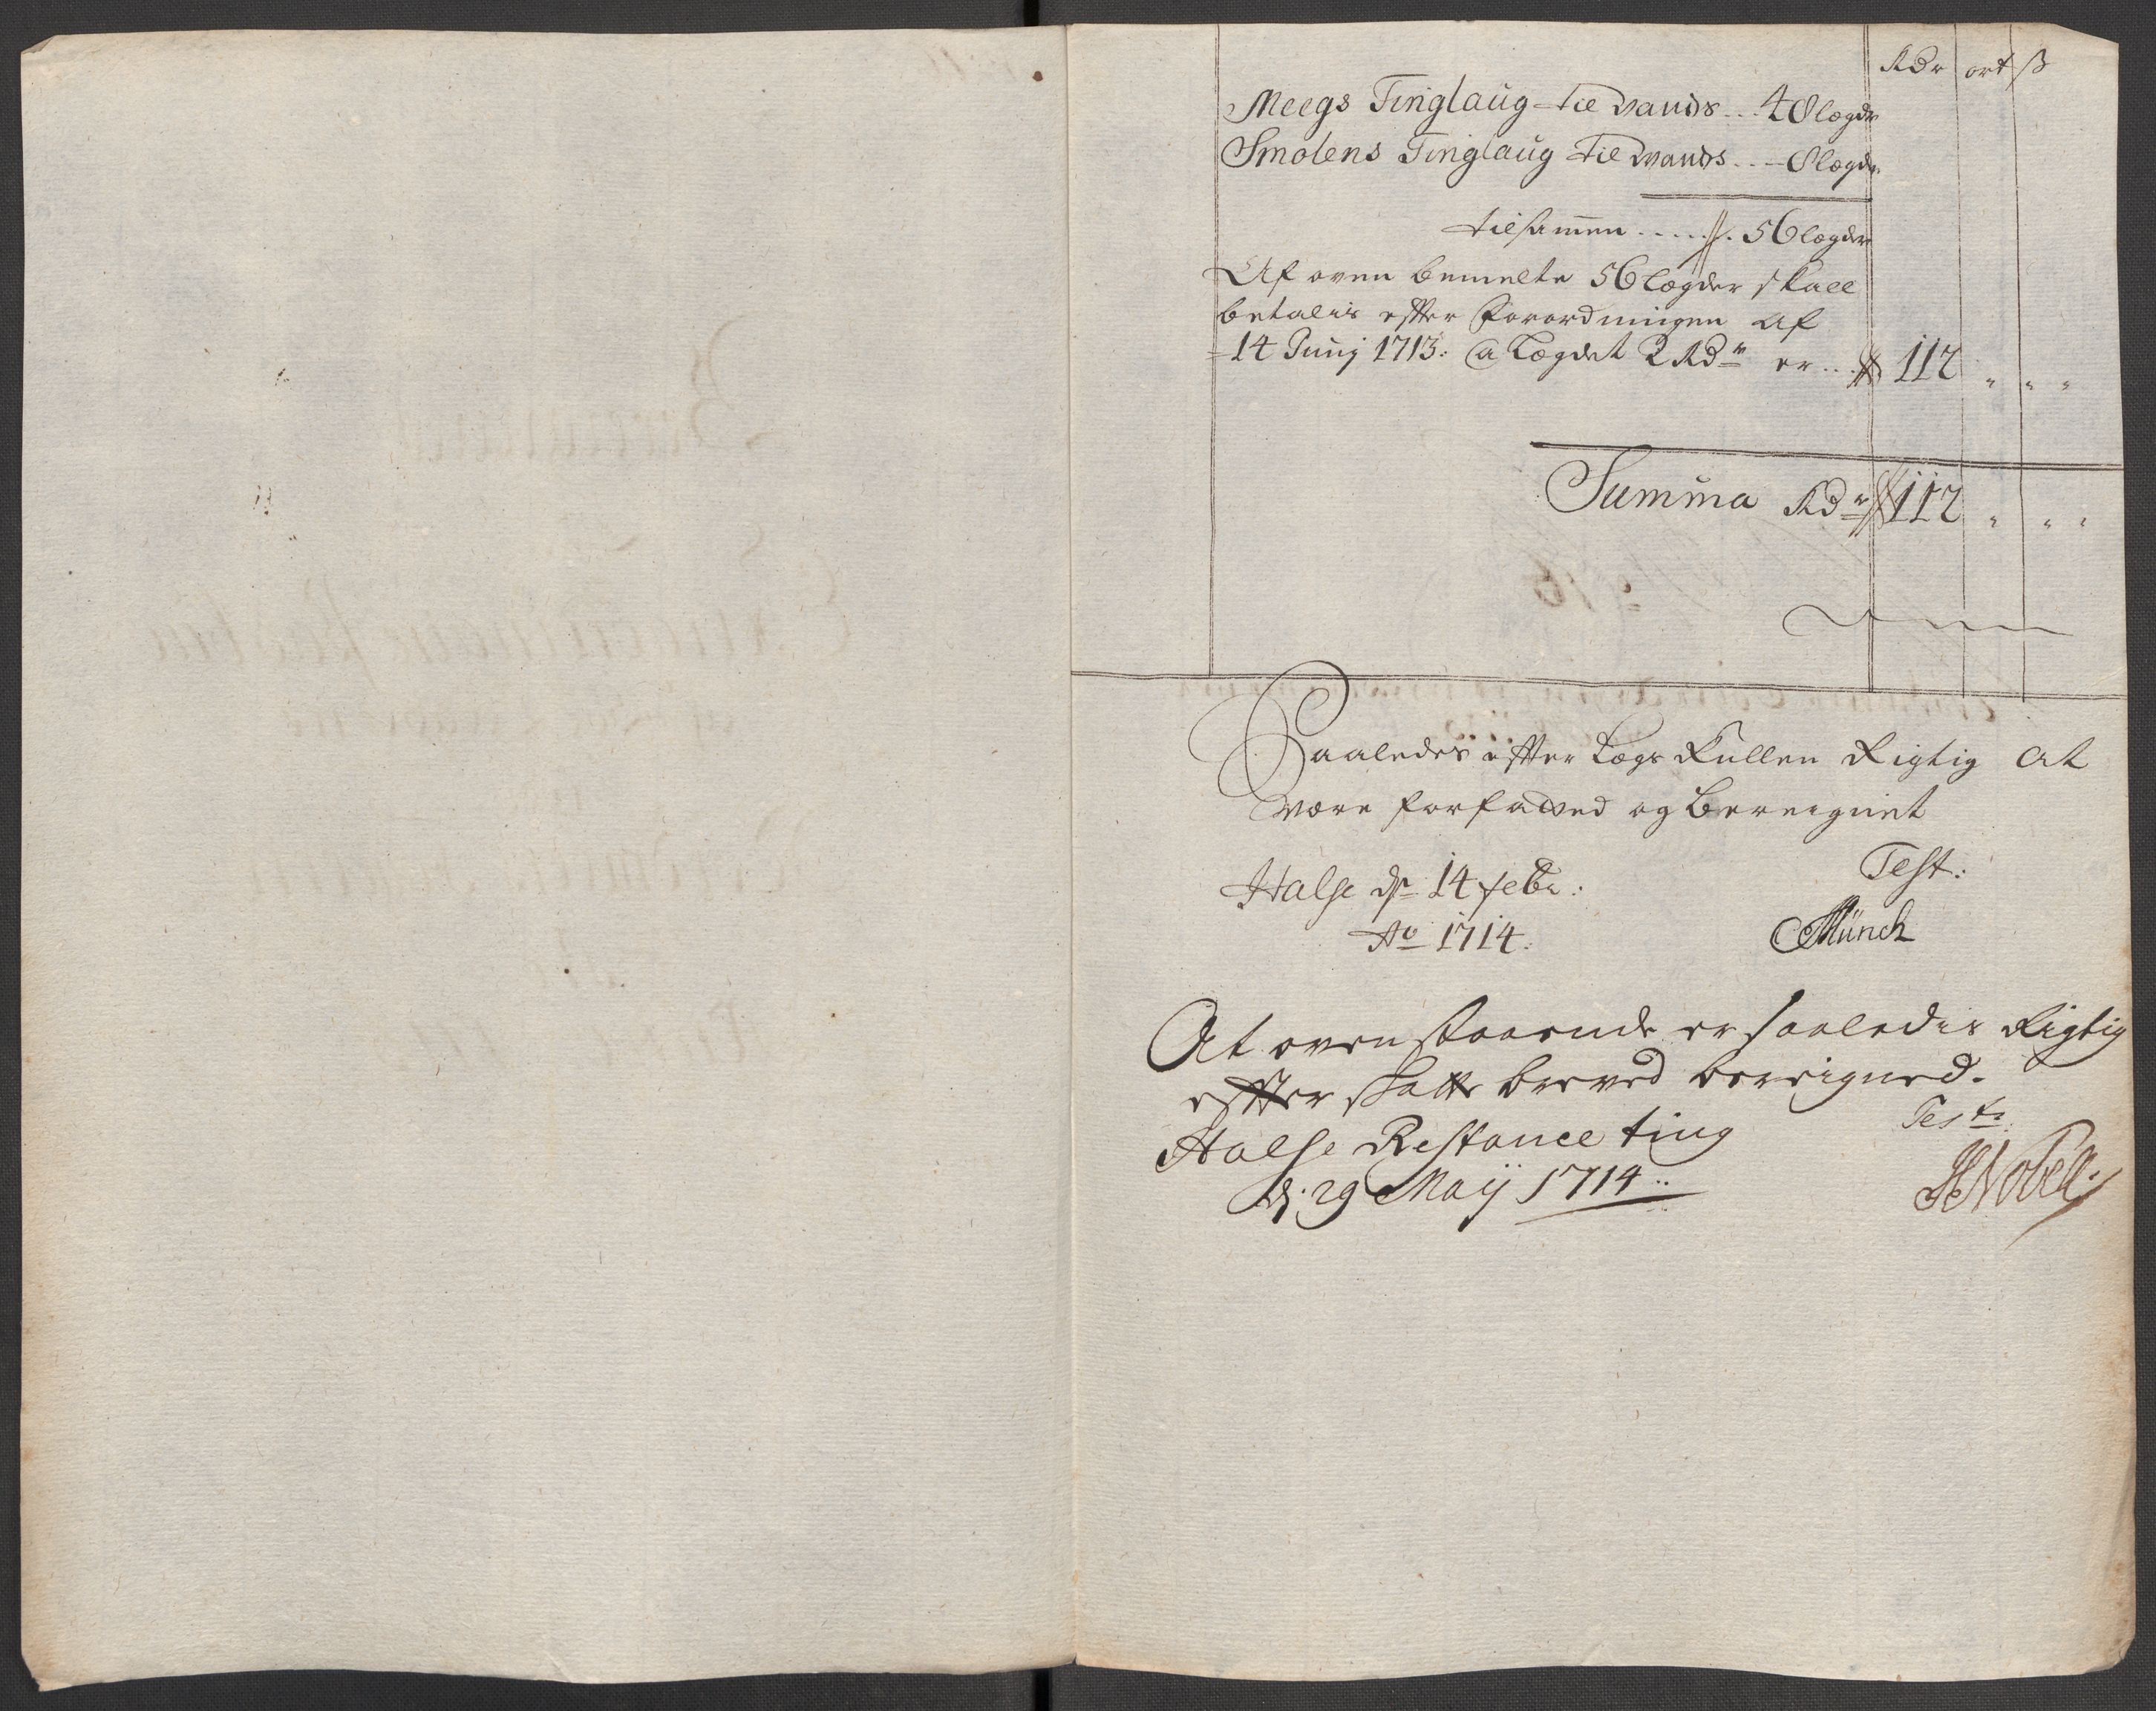 Rdr ort ß
Meegs Tinglaug til vands... 48 lægdr
Smolens Tinglaug til vands... 8 lægdr
tilsamen ..... 56 lægder
Af oven bemelte 56 lægder skall
betalis effter Forordningen af
14 Junj 1713: a Lægdet 2 Rdr er... 112 " " "
Summa Rdr 112 " " "
Saaledes effter Lægs Rullen Rigtig at
være forfatted og Beregnet
Halse dn 14 febr:
Ao 1714.
Test:
Münch
At ovenstaaende er saaledis Rigtig
effter skatte breved beregned.
Halse Restance ting
d: 29 Maij 1714:
Test:
HNobell